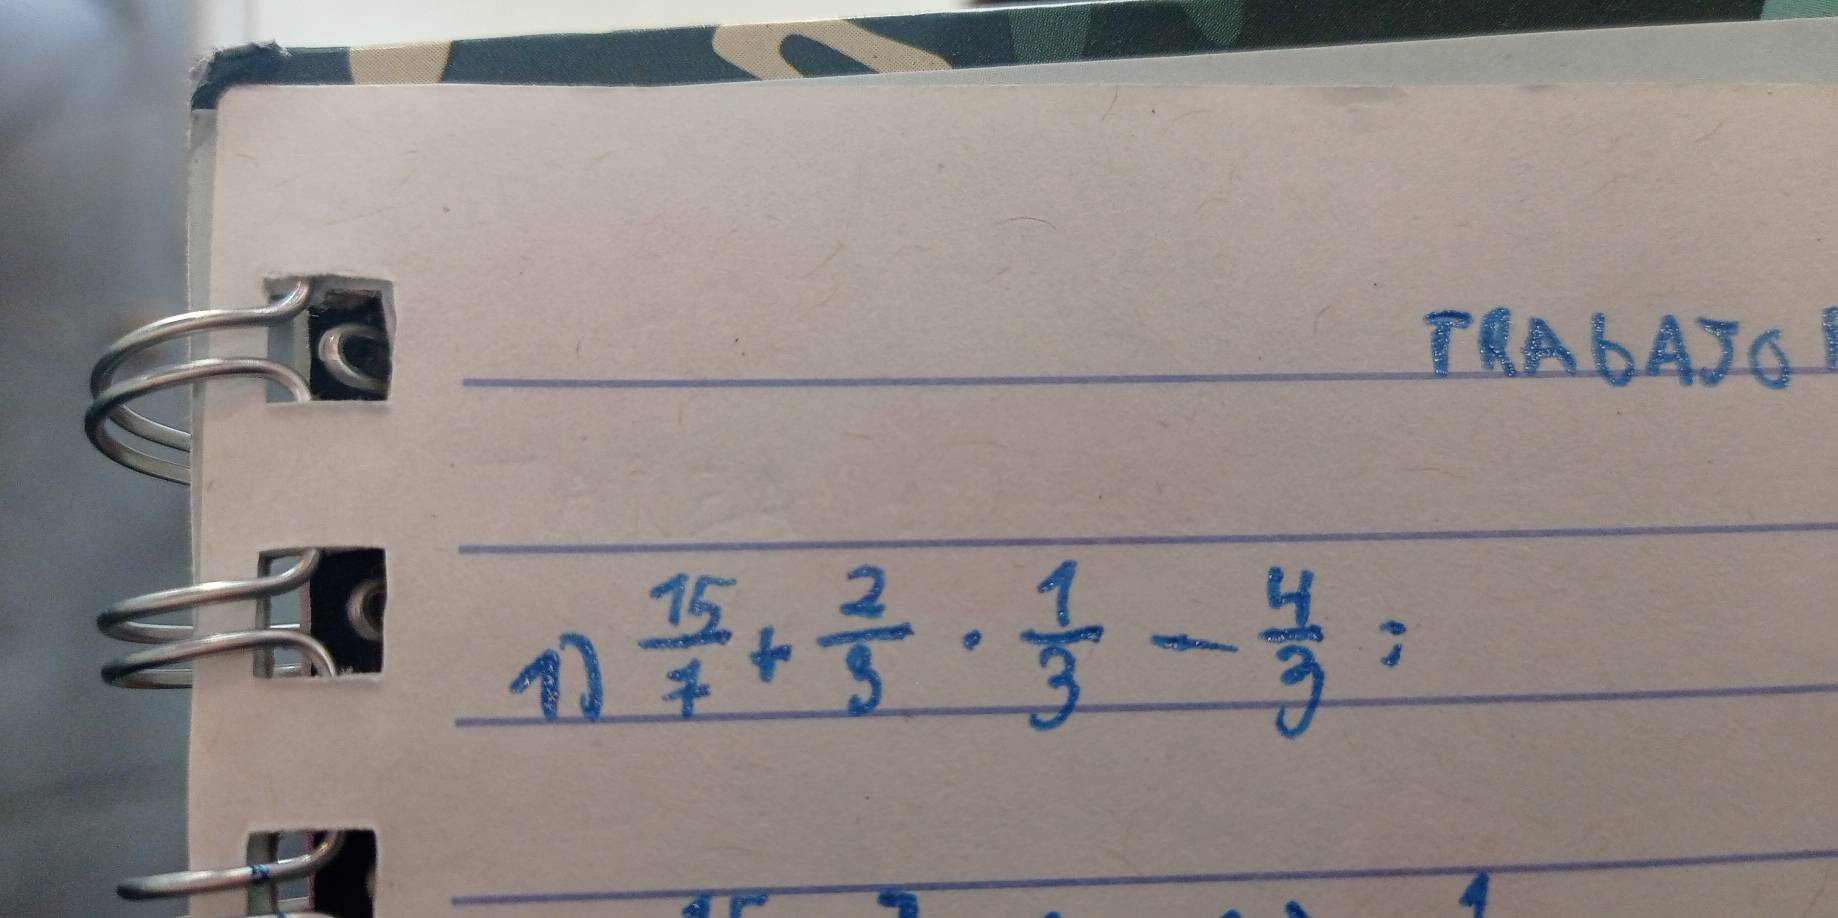 TRABAJO
1) 15/7 + 2/3 · 1/3 - 4/3 :